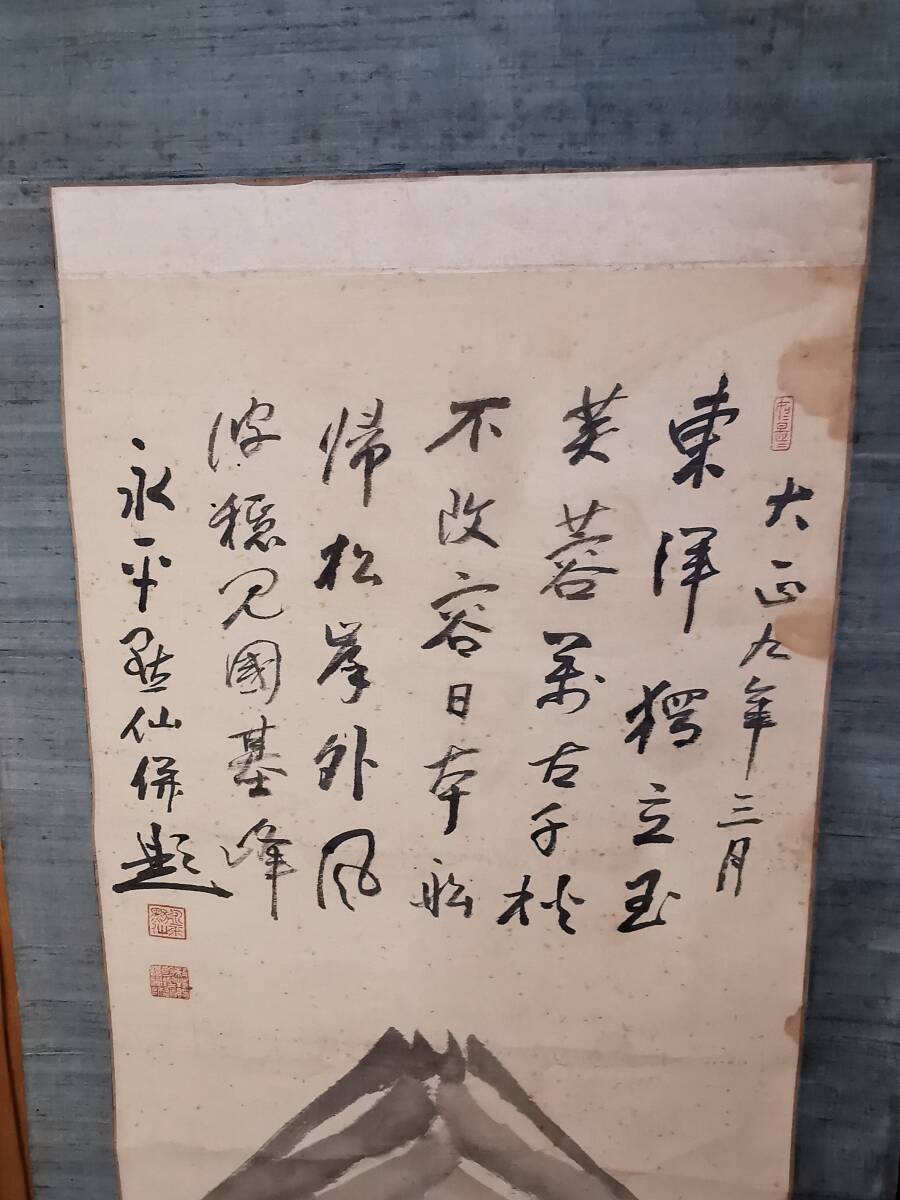 大正九年三月
東洋獨立玉
芙蓉萬古千秋
不改容日本舩
帰松岸外風
波穏見國基峰
永平默仙併題